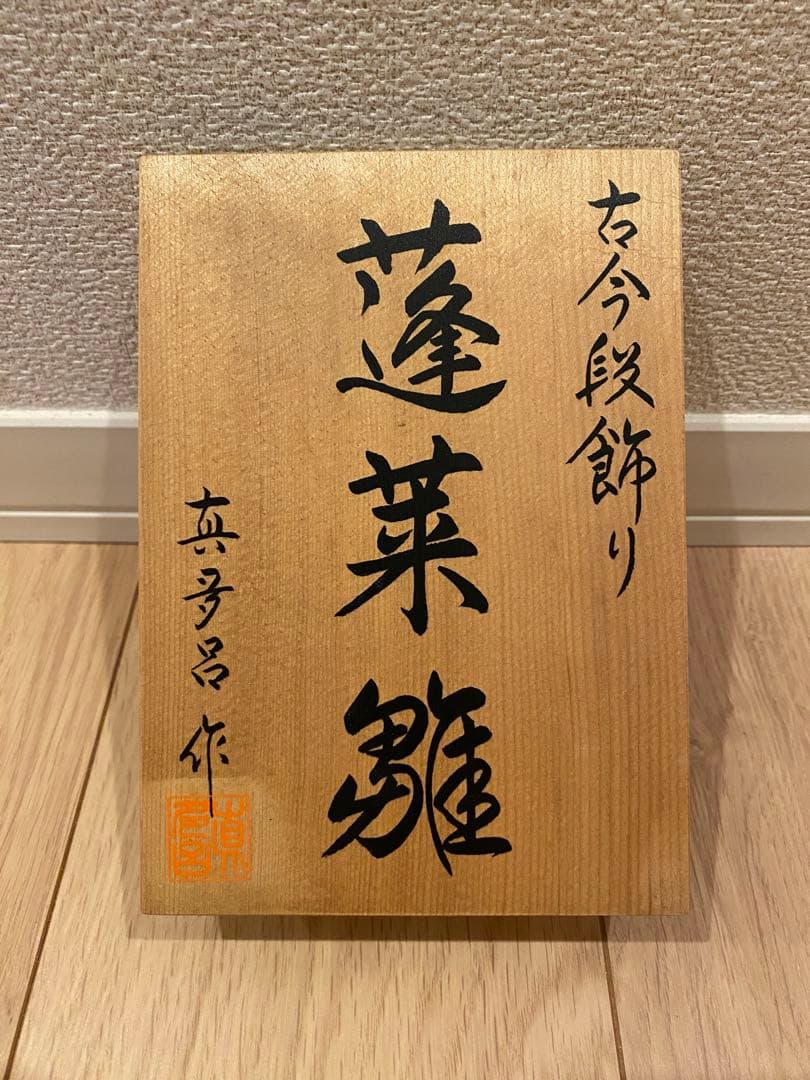 古今段飾り
蓬莱雛
真多呂作